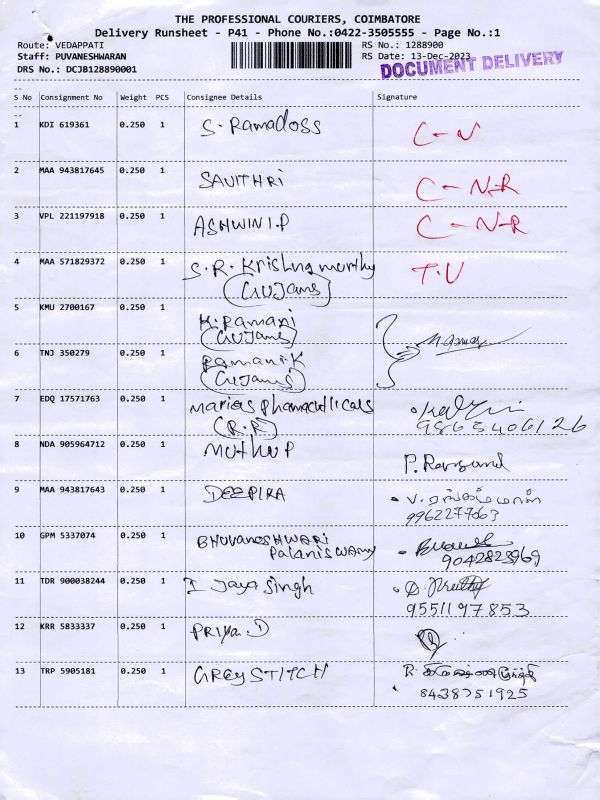 THE PROFESSIONAL COURIERS, COIMBATORE
Delivery Runsheet - P41 - Phone No.:0422-3505555 - Page No.:1
Route: VEDAPPATI
RS No.: 1288900
Staff: PUVANESHWARAN
RS Date: 13-Dec-2023
DRS No.: DCJB128890001
DOCUMENT DELIVERY
S No Consignment No Weight PCS Consignee Details Signature
1 KDI 619361 0.250 1 S. Ramadoss C-N
2 MAA 943817645 0.250 1 SAVITHRI C-N-R
3 VPL 221197918 0.250 1 ASHWINI.P C-N-R
4 MAA 571829372 0.250 1 S.R. Krishnamurthy T.U
(GUJams)
5 KMU 2700167 0.250 1 K. Ramani
(GUJams)
6 TNJ 350279 0.250 1 Ramani K
(GUJams)
7 EDQ 17571763 0.250 1 Marias Phamacuticals
(R.R) 9865406126
8 NDA 905964712 0.250 1 Muthu P
9 MAA 943817643 0.250 1 DEEPIRA
9962277663
10 GPM 5337074 0.250 1 BHUVANESHWARI
Palaniswamy 9042823969
11 TDR 900038244 0.250 1 I Jaya Singh
9551197853
12 KRR 5833337 0.250 1 PRIYA.D
13 TRP 5905181 0.250 1 GREY STITCH
8438751925